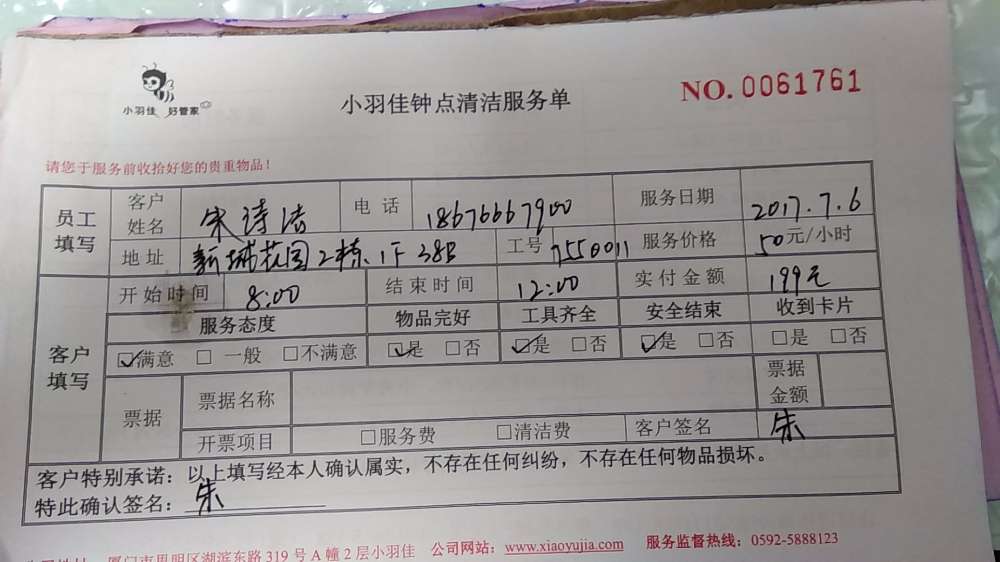 小羽佳 好管家
小羽佳钟点清洁服务单
NO. 0061761
请您于服务前收拾好您的贵重物品!
员工填写
客户姓名 朱诗洁 电话 18676667900 服务日期 2017.7.6
地址 新城花园2栋1F 38B 工号 7550011 服务价格 50元/小时
客户填写
开始时间 8:00 结束时间 12:00 实付金额 199元
服务态度 物品完好 工具齐全 安全结束 收到卡片
☑满意 □一般 □不满意 ☑是 □否 ☑是 □否 ☑是 □否 □是 □否
票据 票据名称 票据金额
开票项目 □服务费 □清洁费 客户签名 朱
客户特别承诺:以上填写经本人确认属实,不存在任何纠纷,不存在任何物品损坏。
特此确认签名:朱
厦门市思明区湖滨东路319号A幢2层小羽佳 公司网站:www.xiaoyujia.com 服务监督热线:0592-5888123